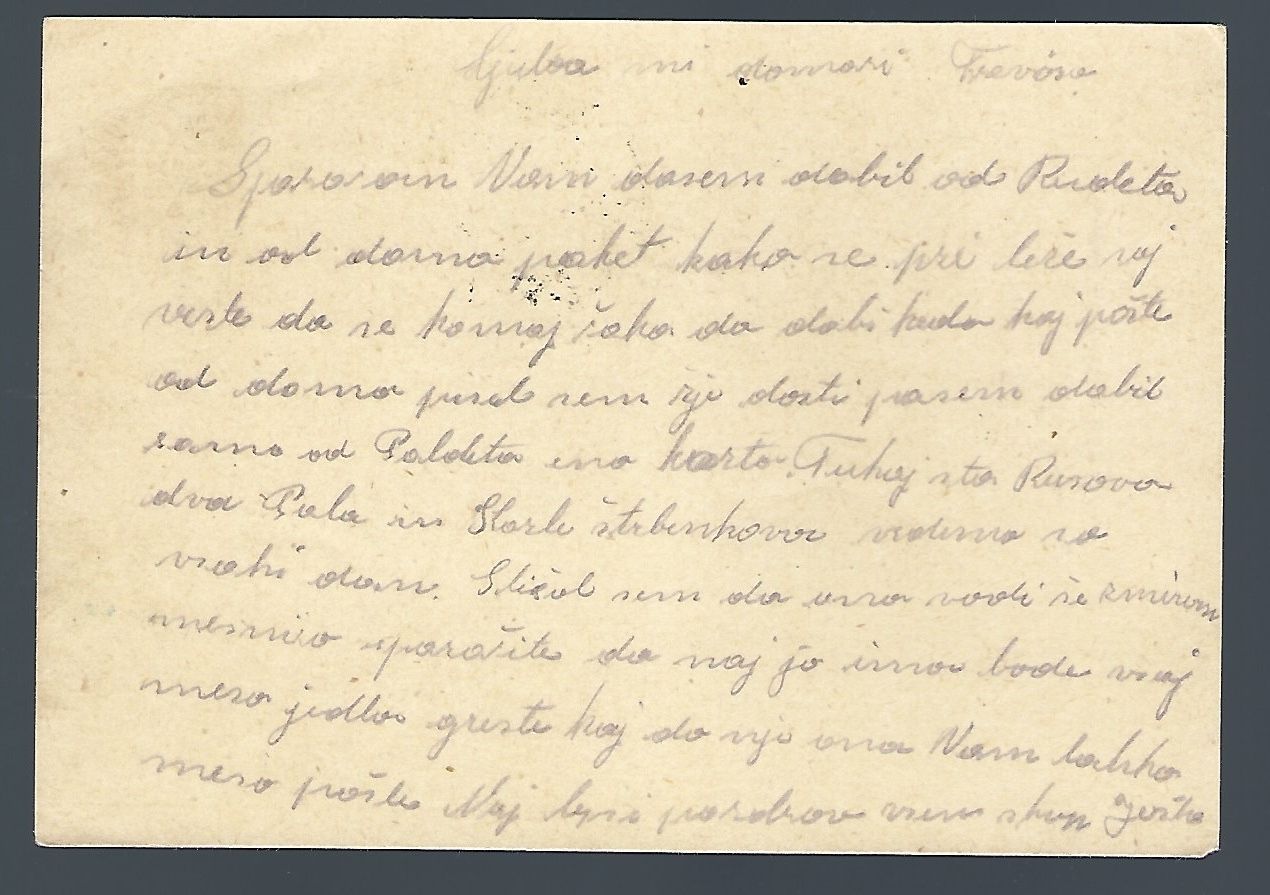 Ljuba mi domači
Sporočam Vam dasem dobil od Rudeta
in od doma paket kako se pri leže saj
veste da se komaj čaka da dobi keda kaj pošte
od doma pisal sem žje dosti pasem dobil
samo od Poldeta eno karto. Tukaj sta Rusova
dva Pala in Slavle štrbenkova vidimo se
vsaki dan. Slišal sem da ona vodi še zmirom
mesnico sporočite da naj jo ima bode vsaj
meso jedla greste kaj do nje ona Vam lahko
meso pošle Naj lepši pozdrav vsem skup Joško